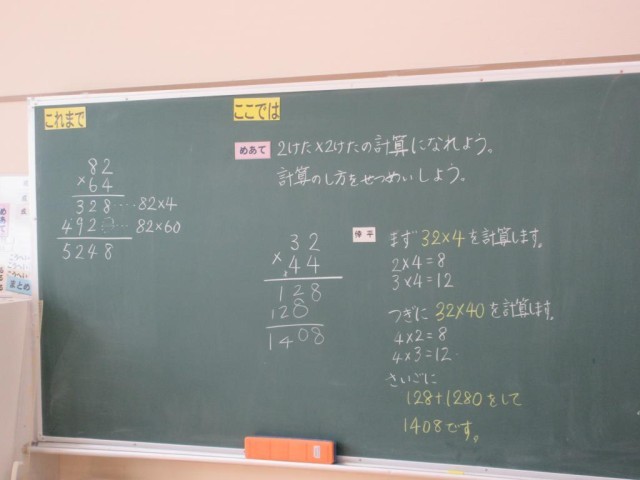 これまで
82
×64
328…82×4
492 … 82×60
5248
ここでは
めあて 2けた×2けたの計算になれよう。
計算のし方をせつめいしよう。
32
×44
128
128
1408
まず 32×4 を計算します。
2×4=8
3×4=12
つぎに 32×40 を計算します。
4×2=8
4×3=12
さいごに
128+1280をして
1408です。
めあて
まとめ